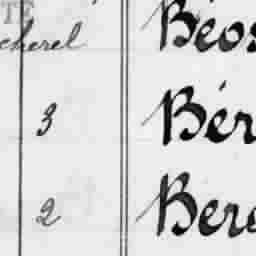 cherel Béos
3 Bér
2 Bere